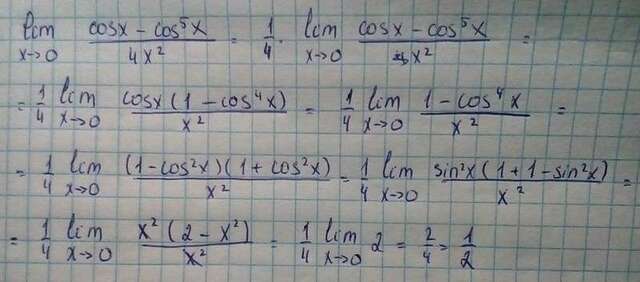 lim x→0 (cosx − cos⁵x)/(4x²) = 1/4 · lim x→0 (cosx − cos⁵x)/(x²) =
= 1/4 lim x→0 (cosx(1 − cos⁴x))/(x²) = 1/4 lim x→0 (1 − cos⁴x)/(x²) =
= 1/4 lim x→0 ((1−cos²x)(1+cos²x))/(x²) = 1/4 lim x→0 (sin²x(1+1−sin²x))/(x²) =
= 1/4 lim x→0 (x²(2−x²))/(x²) = 1/4 lim x→0 2 = 2/4 = 1/2